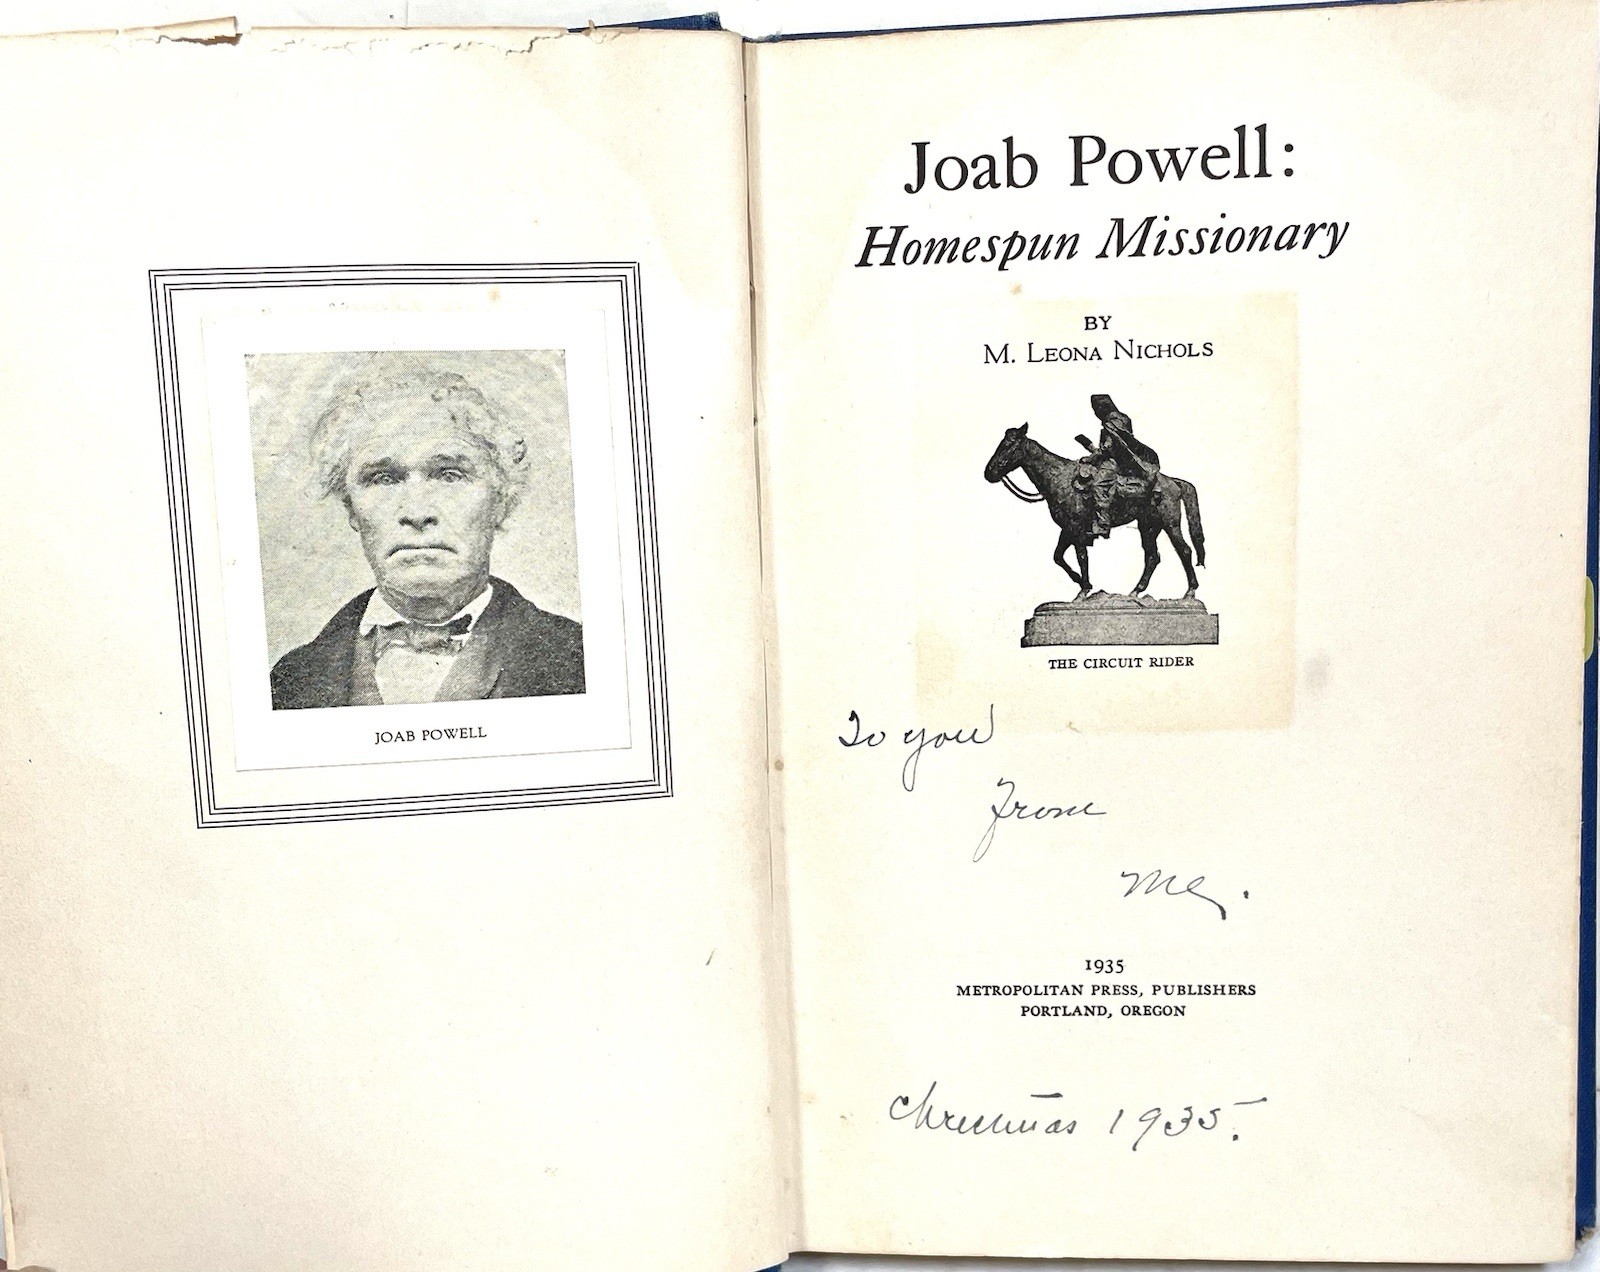 JOAB POWELL
Joab Powell:
Homespun Missionary
BY
M. LEONA NICHOLS
THE CIRCUIT RIDER
To you
From
Me.
1935
METROPOLITAN PRESS, PUBLISHERS
PORTLAND, OREGON
Christmas 1935.